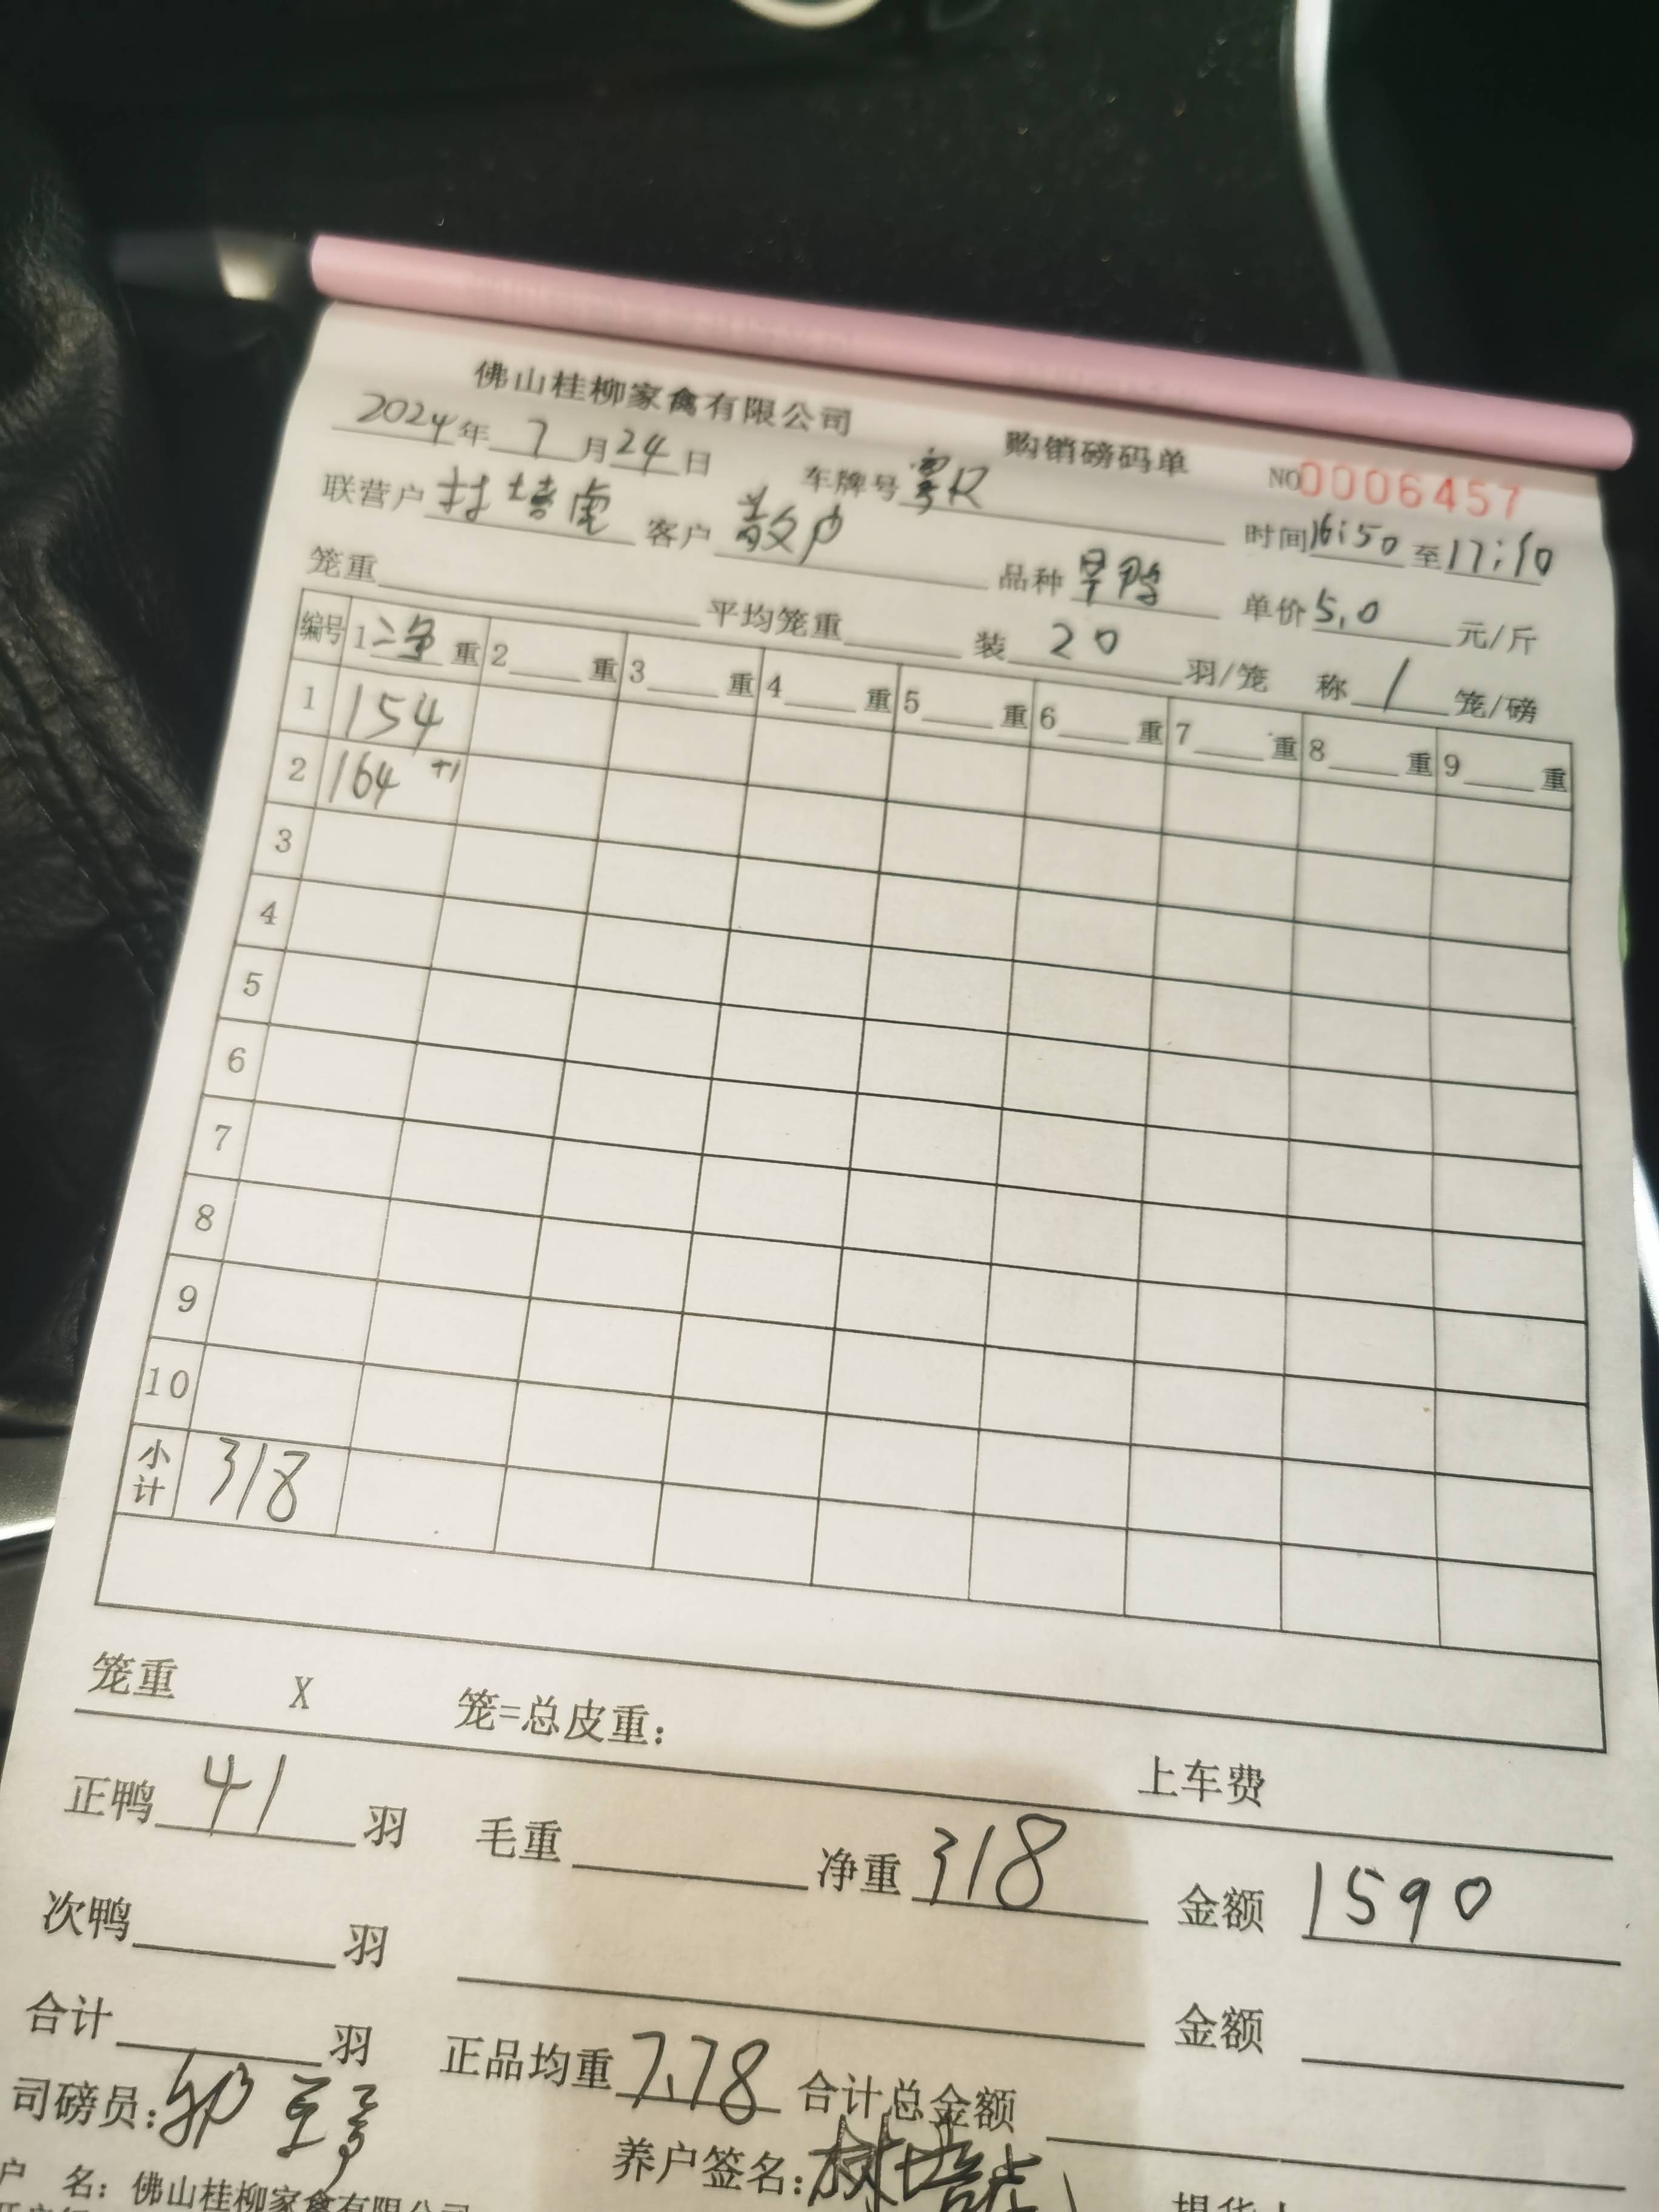 佛山桂柳家禽有限公司 购销磅码单 NO0006457
2024年7月24日 车牌号 时间16:50至17:10
联营户 培虎 客户散户 品种旱鸭 单价5.0元/斤
笼重 平均笼重 装20羽/笼 称1笼/磅
编号 1净重 2重 3重 4重 5重 6重 7重 8重 9重
1 154
2 164 +1
3
4
5
6
7
8
9
10
小计 318
笼重 X 笼=总皮重: 上车费
正鸭41羽 毛重 净重318 金额1590
次鸭羽 金额
合计羽 正品均重7.78 合计总金额
司磅员: 养户签名:
户 名: 佛山桂柳家禽有限公司